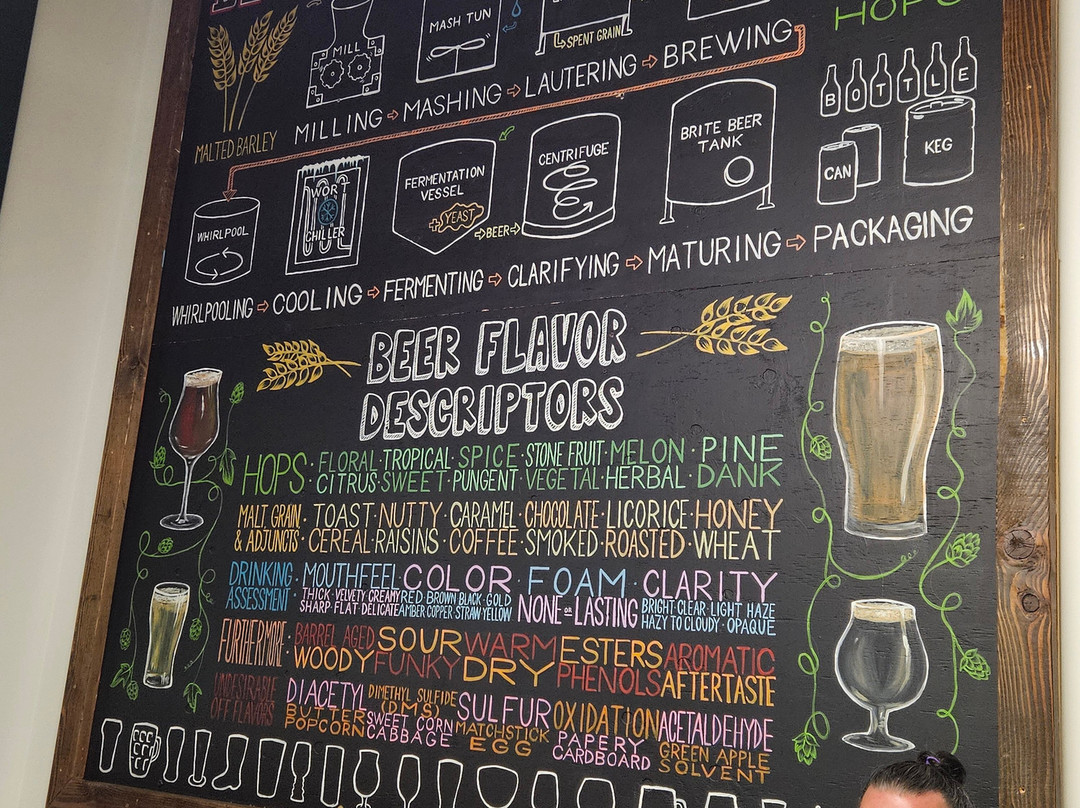 HOPS
MILL
MASH TUN
SPENT GRAIN
MALTED BARLEY
MILLING → MASHING → LAUTERING → BREWING
BOTTLE
CAN
KEG
WHIRLPOOL
WORT
CHILLER
FERMENTATION
VESSEL
+YEAST
→BEER→
CENTRIFUGE
BRITE BEER
TANK
WHIRLPOOLING → COOLING → FERMENTING → CLARIFYING → MATURING → PACKAGING
BEER FLAVOR
DESCRIPTORS
HOPS · FLORAL · TROPICAL · SPICE · STONE FRUIT · MELON · PINE
CITRUS · SWEET · PUNGENT · VEGETAL · HERBAL · DANK
MALT, GRAIN · TOAST · NUTTY · CARAMEL · CHOCOLATE · LICORICE · HONEY
& ADJUNCTS · CEREAL · RAISINS · COFFEE · SMOKED · ROASTED · WHEAT
DRINKING ASSESSMENT · MOUTHFEEL · COLOR · FOAM · CLARITY
THICK · VELVETY · CREAMY RED · BROWN · BLACK · GOLD NONE OR LASTING BRIGHT · CLEAR · LIGHT HAZE
SHARP · FLAT · DELICATE AMBER · COPPER · STRAW · YELLOW HAZY TO CLOUDY · OPAQUE
FURTHERMORE · BARREL AGED SOUR WARM ESTERS AROMATIC
WOODY FUNKY DRY PHENOLS AFTERTASTE
UNDESIRABLE OFF FLAVORS DIACETYL DIMETHYL SULFIDE (DMS) SULFUR OXIDATION ACETALDEHYDE
BUTTER SWEET CORN MATCHSTICK PAPERY GREEN APPLE
POPCORN CABBAGE EGG CARDBOARD SOLVENT